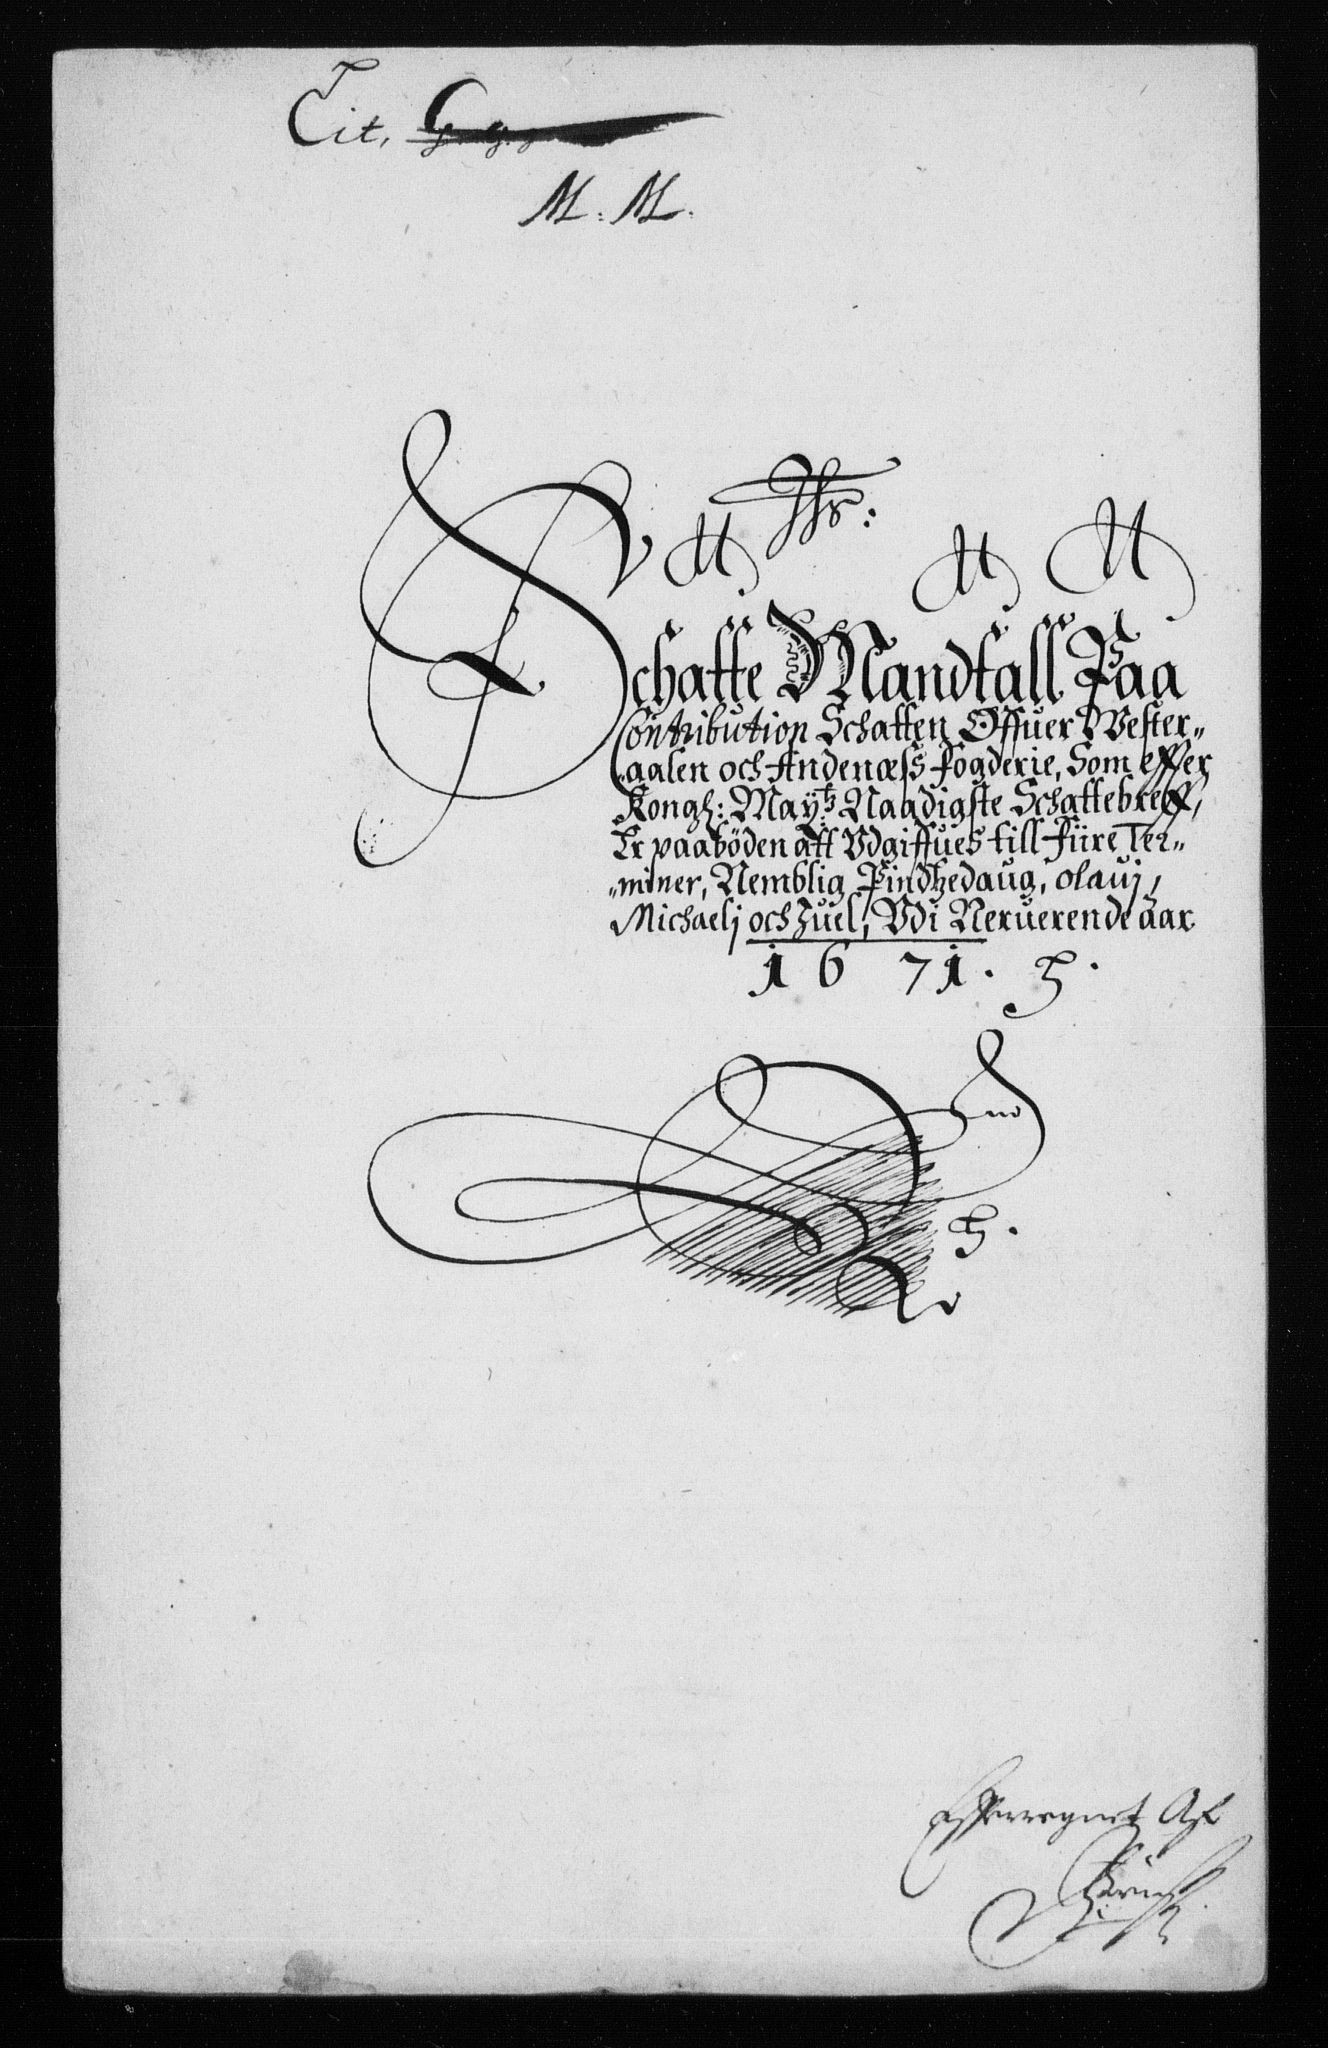 Lit. G. g.
M. M.
Ihs:
Schatte Mandtall Paa
Contribution Schatten Offuer Wester„
„aalen och Andenæss fogderie, Som effter
Kongl: Mayts Naadigste Schattebreff,
Er paaböden att Vdgiffues till fiire Ter„
„miner, Nemblig Pindtzedaug, olauj,
Michaelj och Juel, Vdi Neruerende aar
1671.
Efterregnet Af